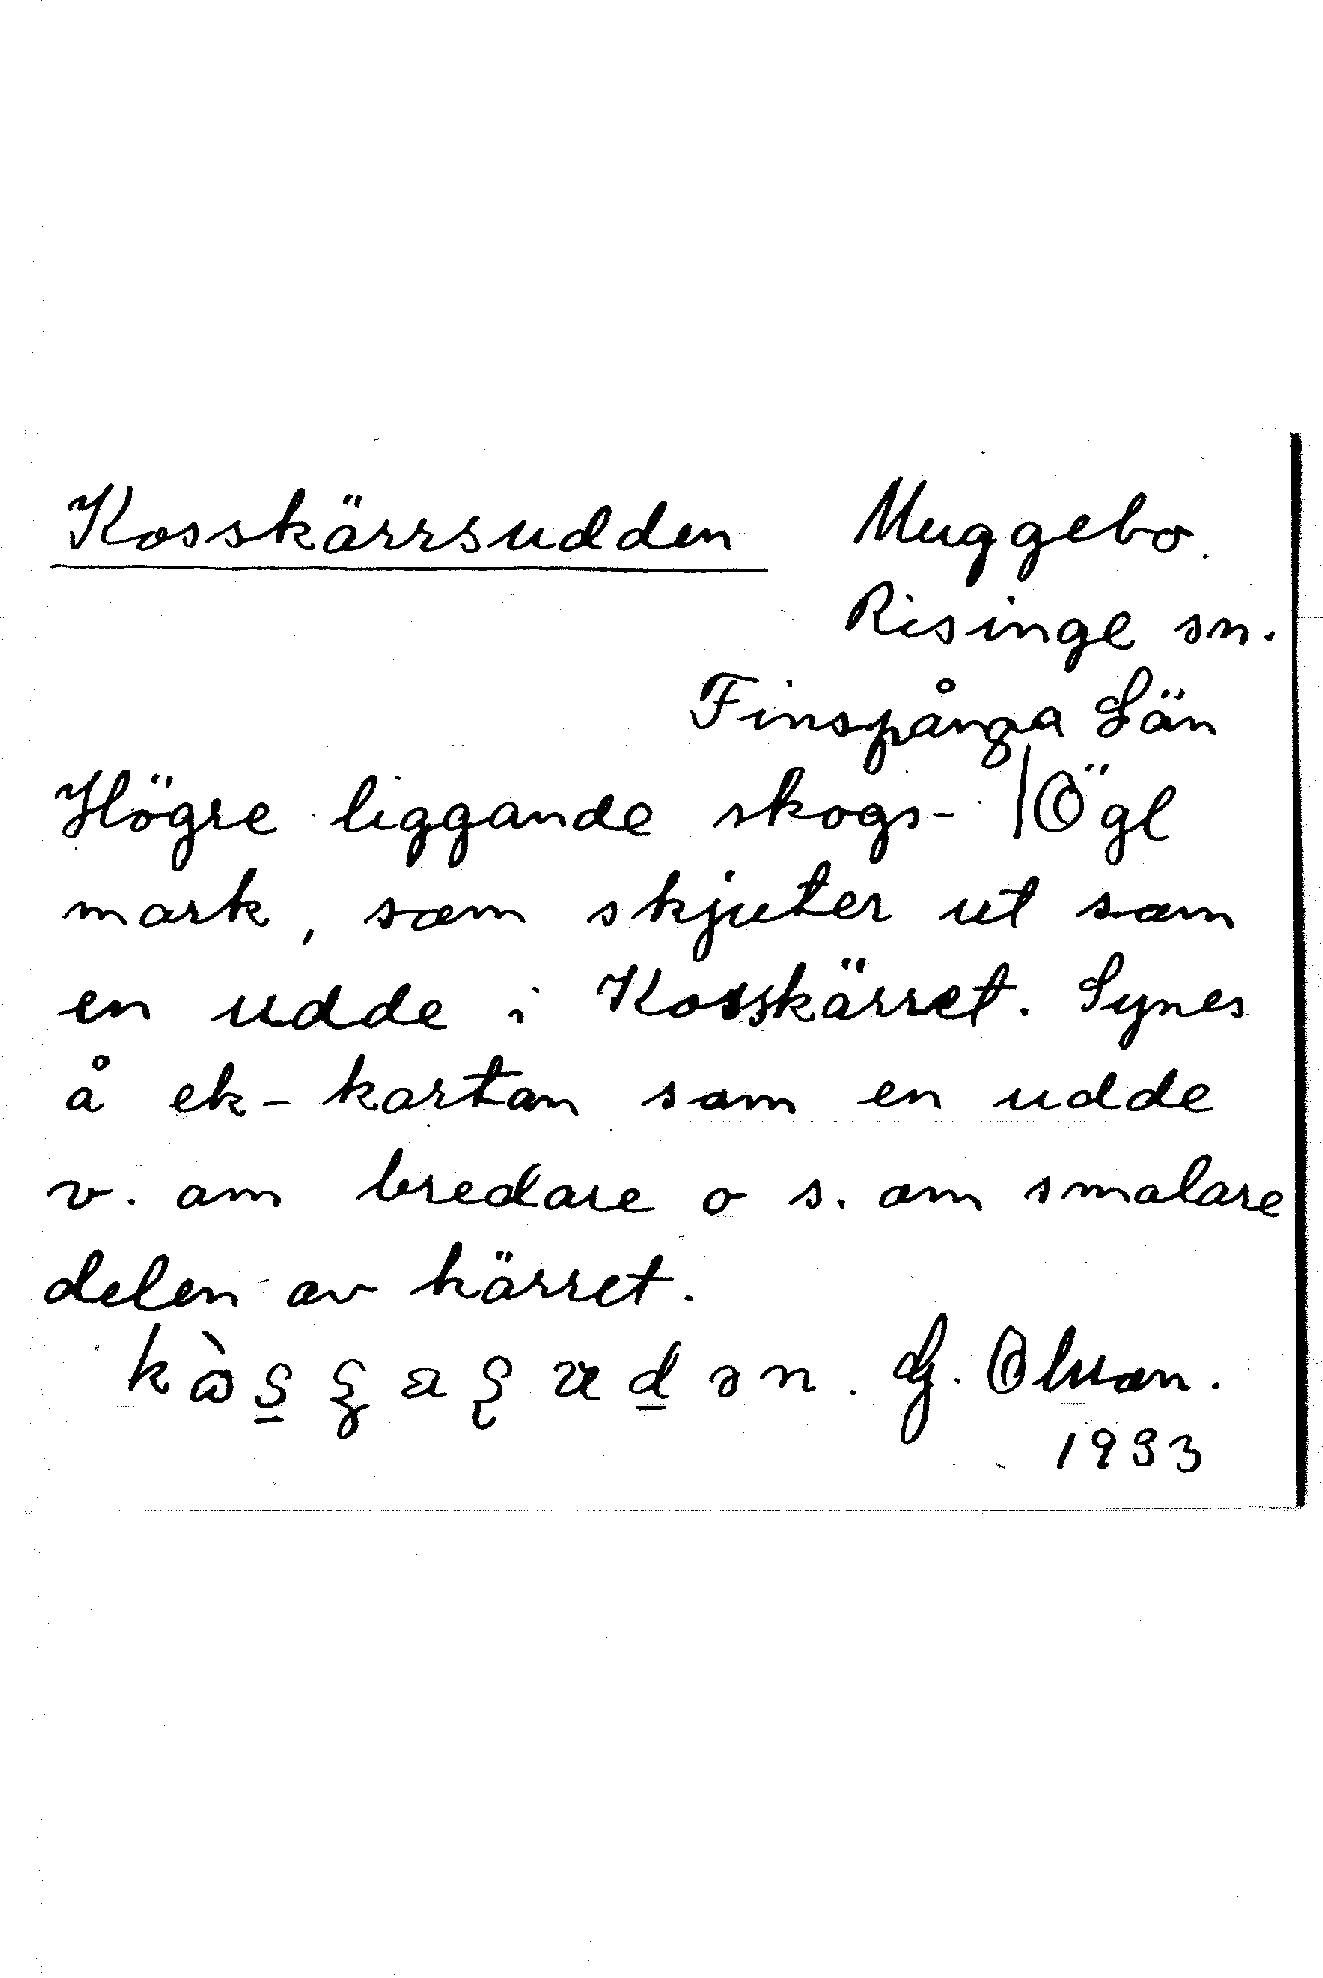 Kosskärrsudden Muggebo.
Risinge sn.
Finspånga Län
Högre liggande skogs- | Ögl
mark, som skjuter ut som
en udde i Kosskärret. Synes
å ek-kartan som en udde
v. om bredare o s. om smalare
delen av kärret.
G. Olson.
1933